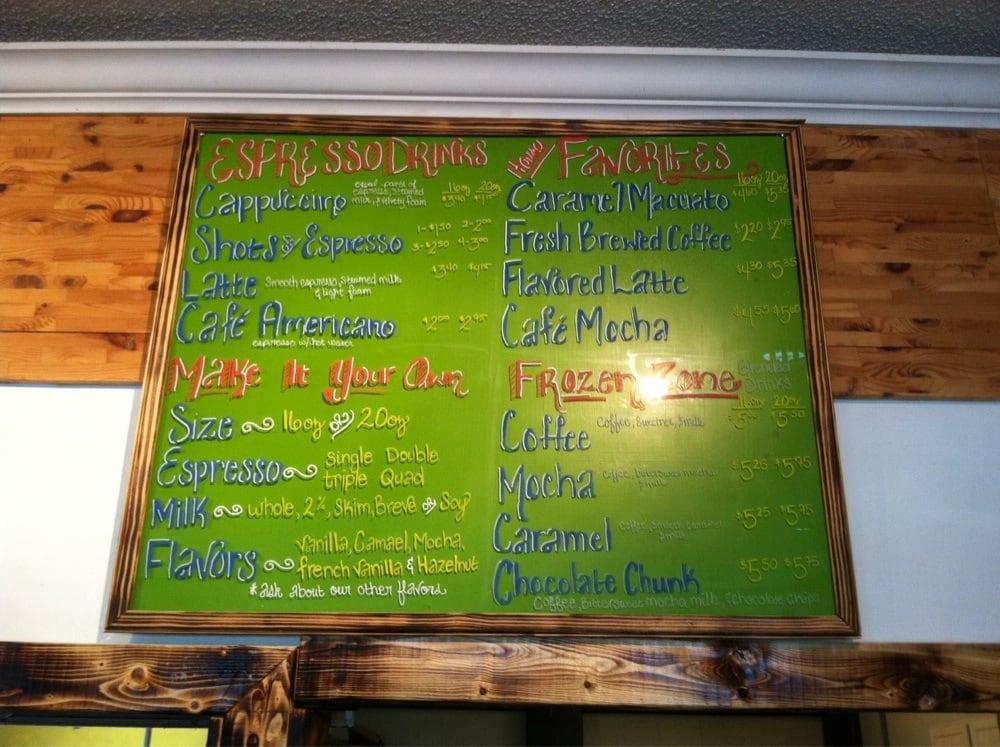 ESPRESSO DRINKS
Cappuccino equal parts of
espresso, steamed
milk, & velvety foam
16oz 20oz
$3.40 $4.15
Shots of Espresso 1-$1.50 2-2.00
3-$2.50 4-3.00
Latte Smooth espresso, steamed milk
& light foam
$3.40 $4.15
Café Americano $2.00 $2.95
espresso w/hot water
Make It Your Own
Size 16oz or 20oz
Espresso single Double
triple Quad
Milk whole, 2%, Skim, Breve or Soy
Flavors Vanilla, Camael, Mocha,
french vanilla & Hazelnut
*ask about our other flavors
House FAVORITES
16oz 20oz
Caramel Macciato $4.60 $5.35
Fresh Brewed Coffee $2.20 $2.95
Flavored Latte $4.30 $5.35
Café Mocha $4.55 $5.60
Frozen Zone Blended
Drinks
16oz 20oz
Coffee Coffee, Sweetner, & milk
$5.50
Mocha coffee, bittersweet mocha
& milk
$5.25 $5.75
Caramel coffee, smooth caramel
& milk
$5.25 $5.75
Chocolate Chunk $5.50 $5.75
Coffee, Bittersweet mocha milk, & chocolate chips